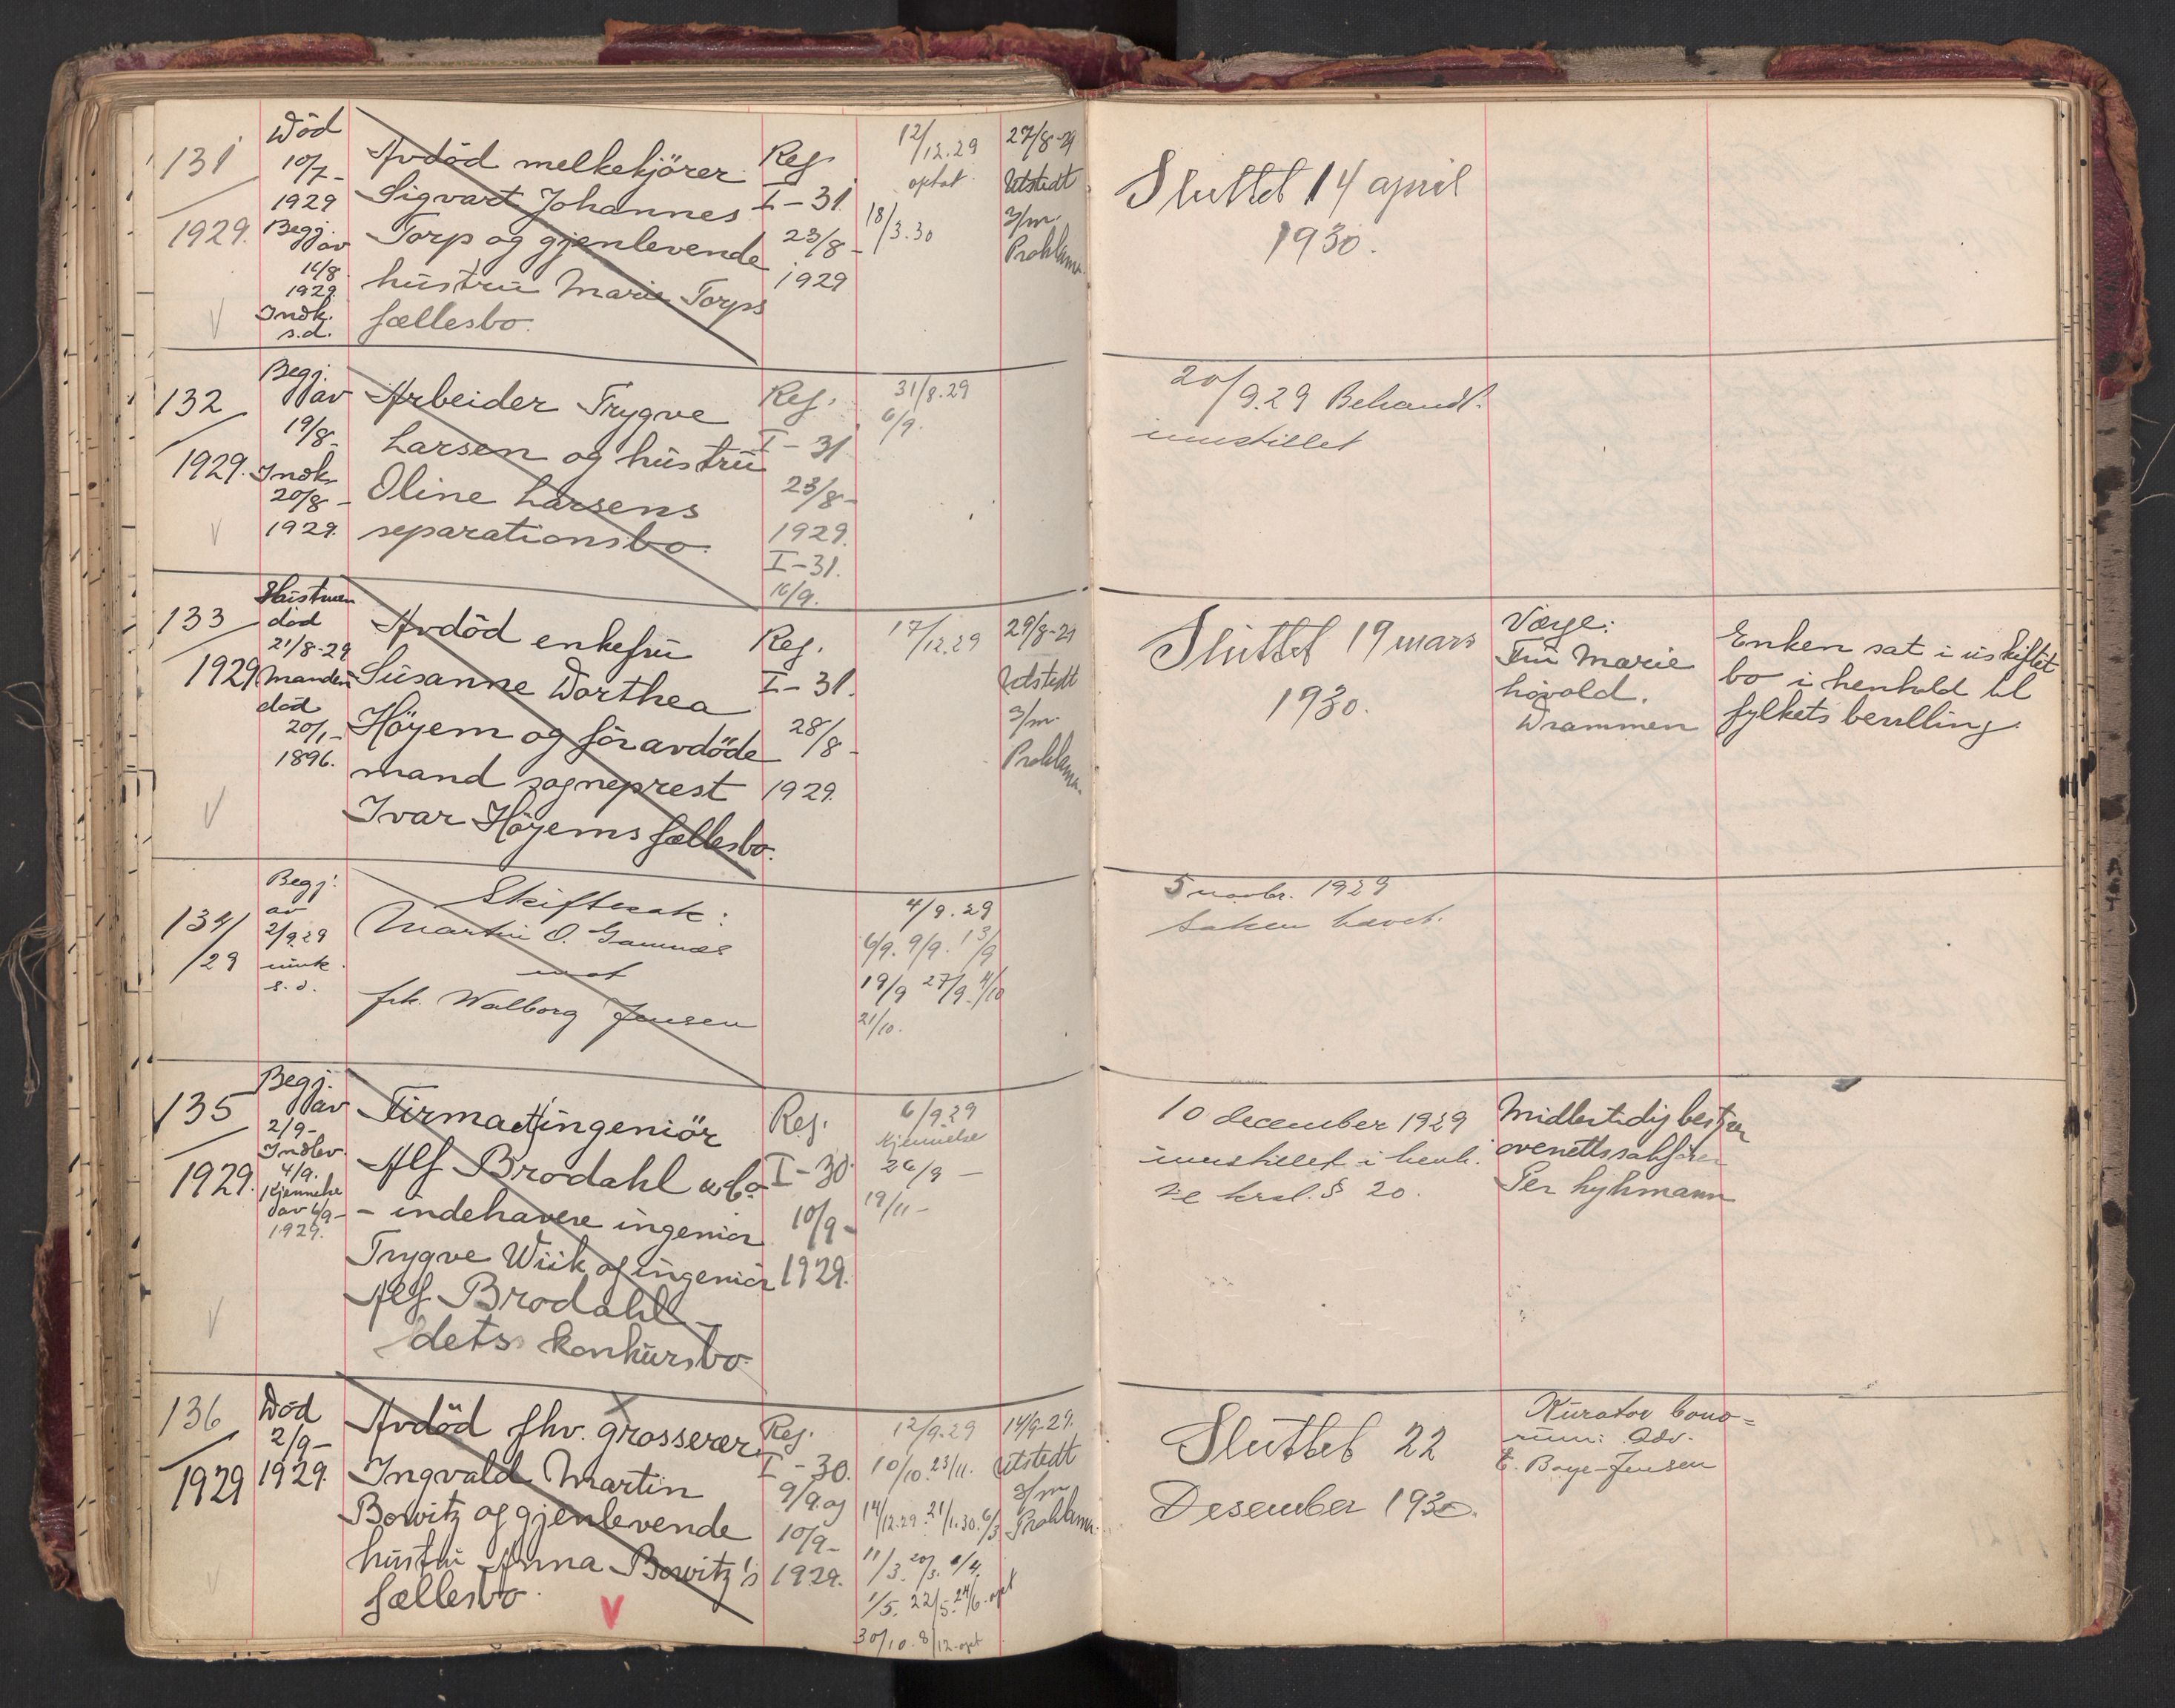 131
1929.
Död
10/7 -
1929
Begj.
av
16/8
1929.
Indk.
s.d.
Avdöd melkekjörer
Sigvart Johannes
Torp og gjenlevende
hustru Marie Torps
fællesbo.
Reg.
I - 31.
23/8 -
1929
12/12.29
optat.
18/3.30
27/8-29
Utstedt
3/m.
Proklama.
Sluttet 14 april
1930.
132
1929.
Begj.
av
19/8-
Indk.
20/8 -
1929.
Arbeider Trygve
Larsen og hustru
Oline Larsens
separationsbo.
Reg.
I - 31
23/8 -
1929.
I - 31.
16/9.
31/8.29
6/9.
20/9.29 Behandl.
innstillet
133
1929
Hustruen
död
21/8-29
Manden
död
20/1 -
1896.
Avdöd enkefru
Susanne Dorthea
Höyem og föravdöde
mand sogneprest
Ivar Höyems fællesbo.
Reg.
I - 31.
28/8 -
1929.
17/12.29
29/8-29
Utstedt
3/m.
Proklama.
Sluttet 19 mars
1930.
Værge:
Fru Marie
Hovold.
Drammen
Enken sat i uskiftet
bo i henhold til
fylkets bevilling.
134/
/29
Begj.
av
2/9.29
innk.
s.d.
Skiftesak:
Martin O. Gamnes
mot
frk. Walborg Jensen
4/9.29
6/9. 9/9. 13/9
19/9 27/9. 4/10
21/10.
5 novbr. 1929
saken hævet.
135
1929.
Begj.
av
2/9-
Indlev.
4/9.
Kjennelse
av 6/9-
1929.
Firmaet ingeniör
Alf Brodahl & Co.
- indehavere ingeniör
Trygve Wiik og ingeniör
Alf Brodahl -
dets konkursbo.
Reg.
I - 30.
10/9 -
1929.
6/9.29
kjennelse
26/9 -
19/11 -
10 december 1929
innstillet i henh.
kral. § 20.
Midlertidig bestyrer
overrettssakförer
Per Lykmann
136
1929
Död
2/9-
1929.
Avdöd fhv. grosserer
Ingvald Martin
Bowitz og gjenlevende
hustru Anna Bowitz's
fællesbo.
V
Reg.
I - 30.
9/9. og
10/9-
1929.
12/9.29
10/10. 23/11.
14/12.29. 21/1.30. 6/3
11/3. 20/3. 1/4.
1/5. 22/5. 24/6. opt
30/10. 8/12. opt
14/9-29.
Utstedt
3/m
Proklama.
Sluttet 22
Desember 1930.
Kurator bono-
rum: Adv.
E. Boye-Jensen